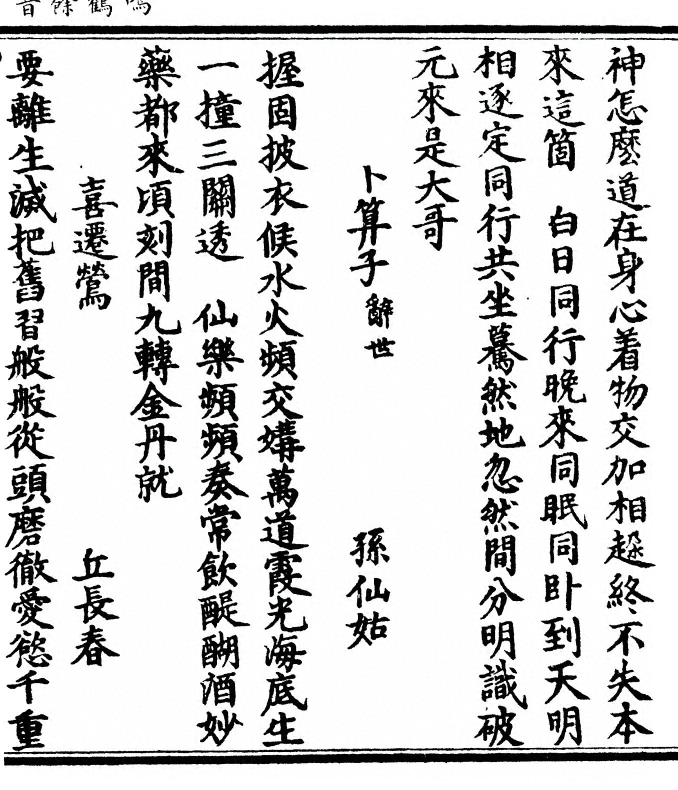 鳴鶴餘音
神怎麽道在身心着物交加相趂終不失本
來這箇　白日同行晚來同眠同卧到天明
相逐定同行共坐驀然地忽然間分明識破
元來是大哥
卜算子 辭世　孫仙姑
握固披衣候水火頻交媾萬道霞光海底生
一撞三關透　仙樂頻頻奏常飲醍醐酒妙
藥都來頃刻間九轉金丹就
喜遷鶯　丘長春
要離生滅把舊習般般從頭磨徹愛慾千重